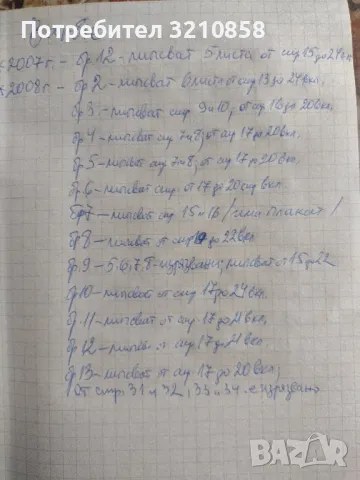 Потребител 3210858
2007г. - бр 12 - липсват 5 листа от стр 15 до 24 вкл
2008г - бр 2 - липсват 6 листа от стр 13 до 24 вкл.
бр 3 - липсват стр. 9 и 10, от стр 16 до 20 вкл.
бр 4 - липсват стр 7 и 8, от стр 17 до 20 вкл.
бр. 5 - липсват стр 7 и 8, от стр 17 до 20 вкл.
бр. 6 - липсват стр. от 17 до 20 стр вкл.
бр 7 - липсват стр 15 и 16 / има плакат /
бр 8 - липсват от стр до 22 вкл
бр. 9 - 5,6,7,8 - изрязвани, липсват от 15 до 22
бр 10 - липсват от стр 17 до 24 вкл.
бр. 11 - липсват от стр 17 до 21 вкл.
бр 12 - липсват от стр. 17 до 21 вкл.
бр. 13 - липсват от стр 17 до 20 вкл,
от стр. 31 и 32, 33 и 34 е изрязвано
BAZAR